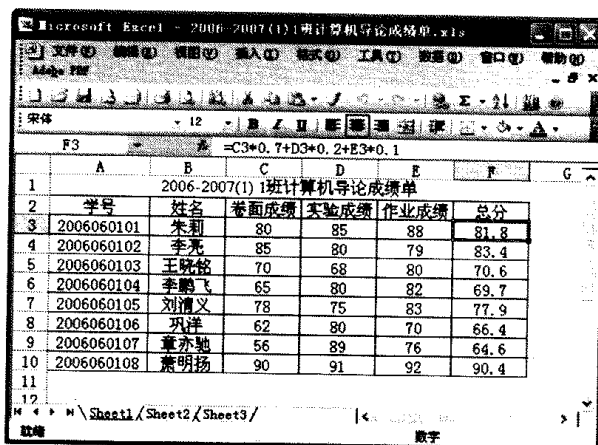 Microsoft Excel - 2006-2007(1)1班计算机导论成绩单.xls
文件(F) 编辑(E) 视图(V) 插入(I) 格式(O) 工具(T) 数据(D) 窗口(W) 帮助(H)
Adobe PDF
宋体 12 B I U
F3 =C3*0.7+D3*0.2+E3*0.1
A B C D E F G
1 2006-2007(1) 1班计算机导论成绩单
2 学号 姓名 卷面成绩 实验成绩 作业成绩 总分
3 2006060101 朱莉 80 85 88 81.8
4 2006060102 李亮 85 80 79 83.4
5 2006060103 王晓铭 70 68 80 70.6
6 2006060104 李鹏飞 65 80 82 69.7
7 2006060105 刘清义 78 75 83 77.9
8 2006060106 巩洋 62 80 70 66.4
9 2006060107 章亦驰 56 89 76 64.6
10 2006060108 萧明扬 90 91 92 90.4
11
12
Sheet1 / Sheet2 / Sheet3 /
就绪 数字